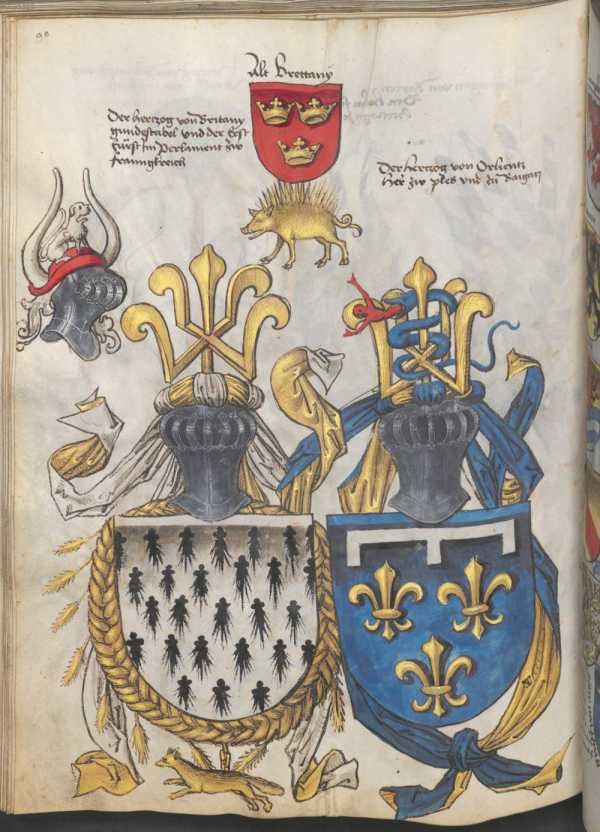 90
Alt Brettany
Der hertzog von Britany
gundestabel vnd der Erst
fürst im Perlament zw
franngkreich
Der hertzog von Orlientz
her zw ples vnd zu